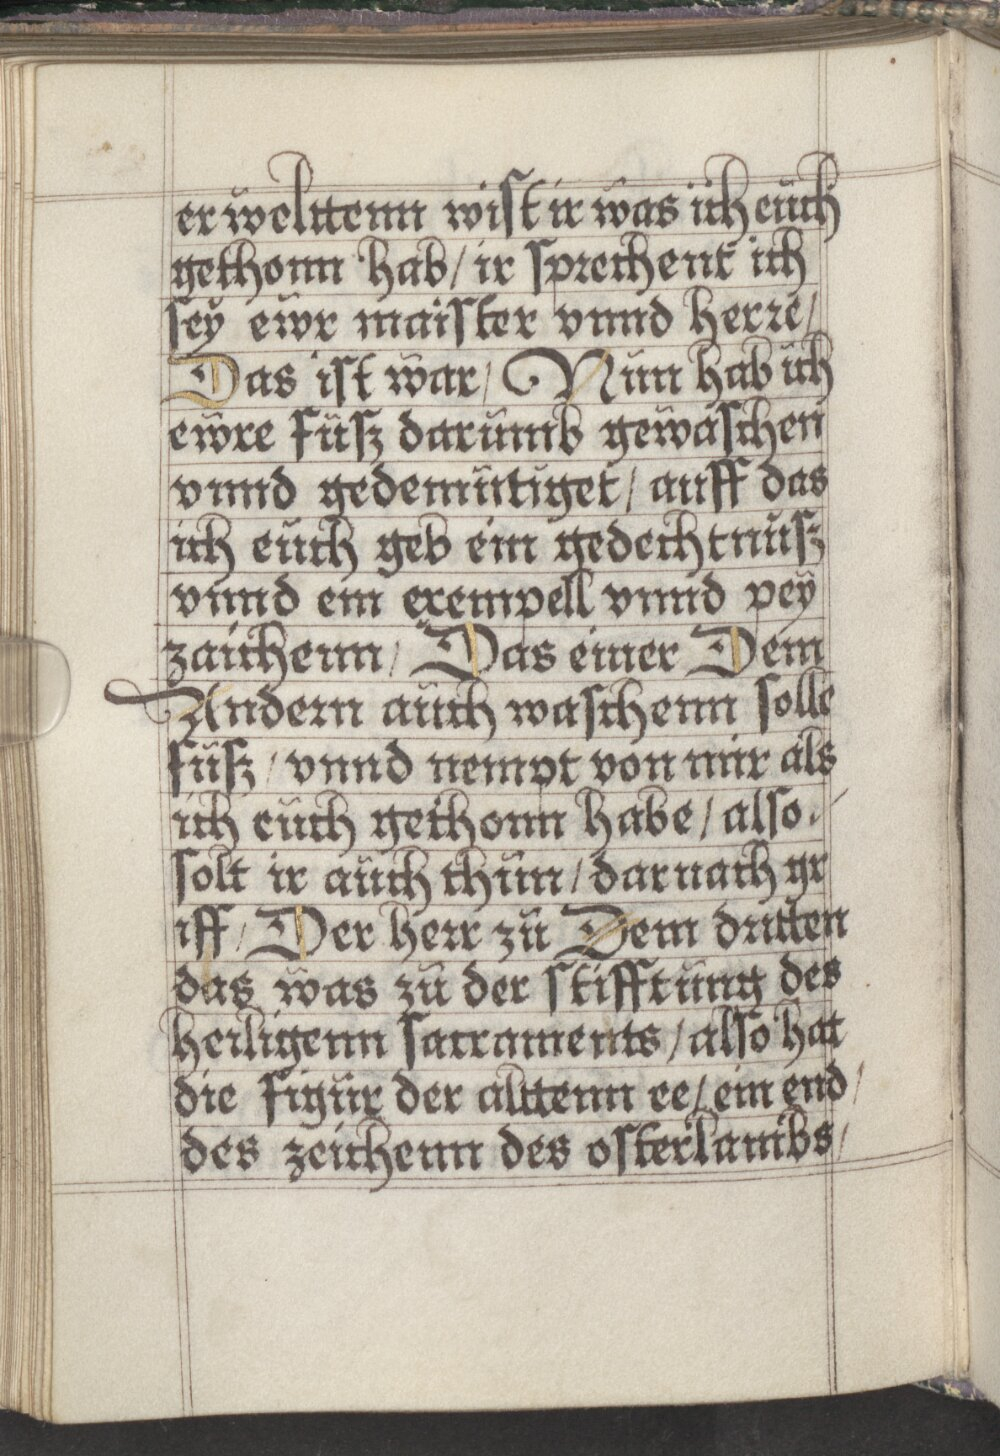 erwelttenn wist ir was ich euch
gethonn hab / ir sprechent ich
sey ewr maister vnnd herre /
Das ist war / Nun hab ich
ewre füsz darumb gewaschen
vnnd gedemütiget / auff das
ich euch geb ein gedechtnusz
vnnd ein exempell vnnd pey
zaichenn / Das einer Dem
Andern auch waschenn solle
füsz / vnnd nempt von mir als
ich euch gethonn habe / also /
solt ir auch thun / darnach gr
iff / Der herr zu Dem dritten
das was zu der stifftung des
heiligenn sacraments / also hat
die figur der alttenn ee / ein end /
des zeichenn des osterlambs /